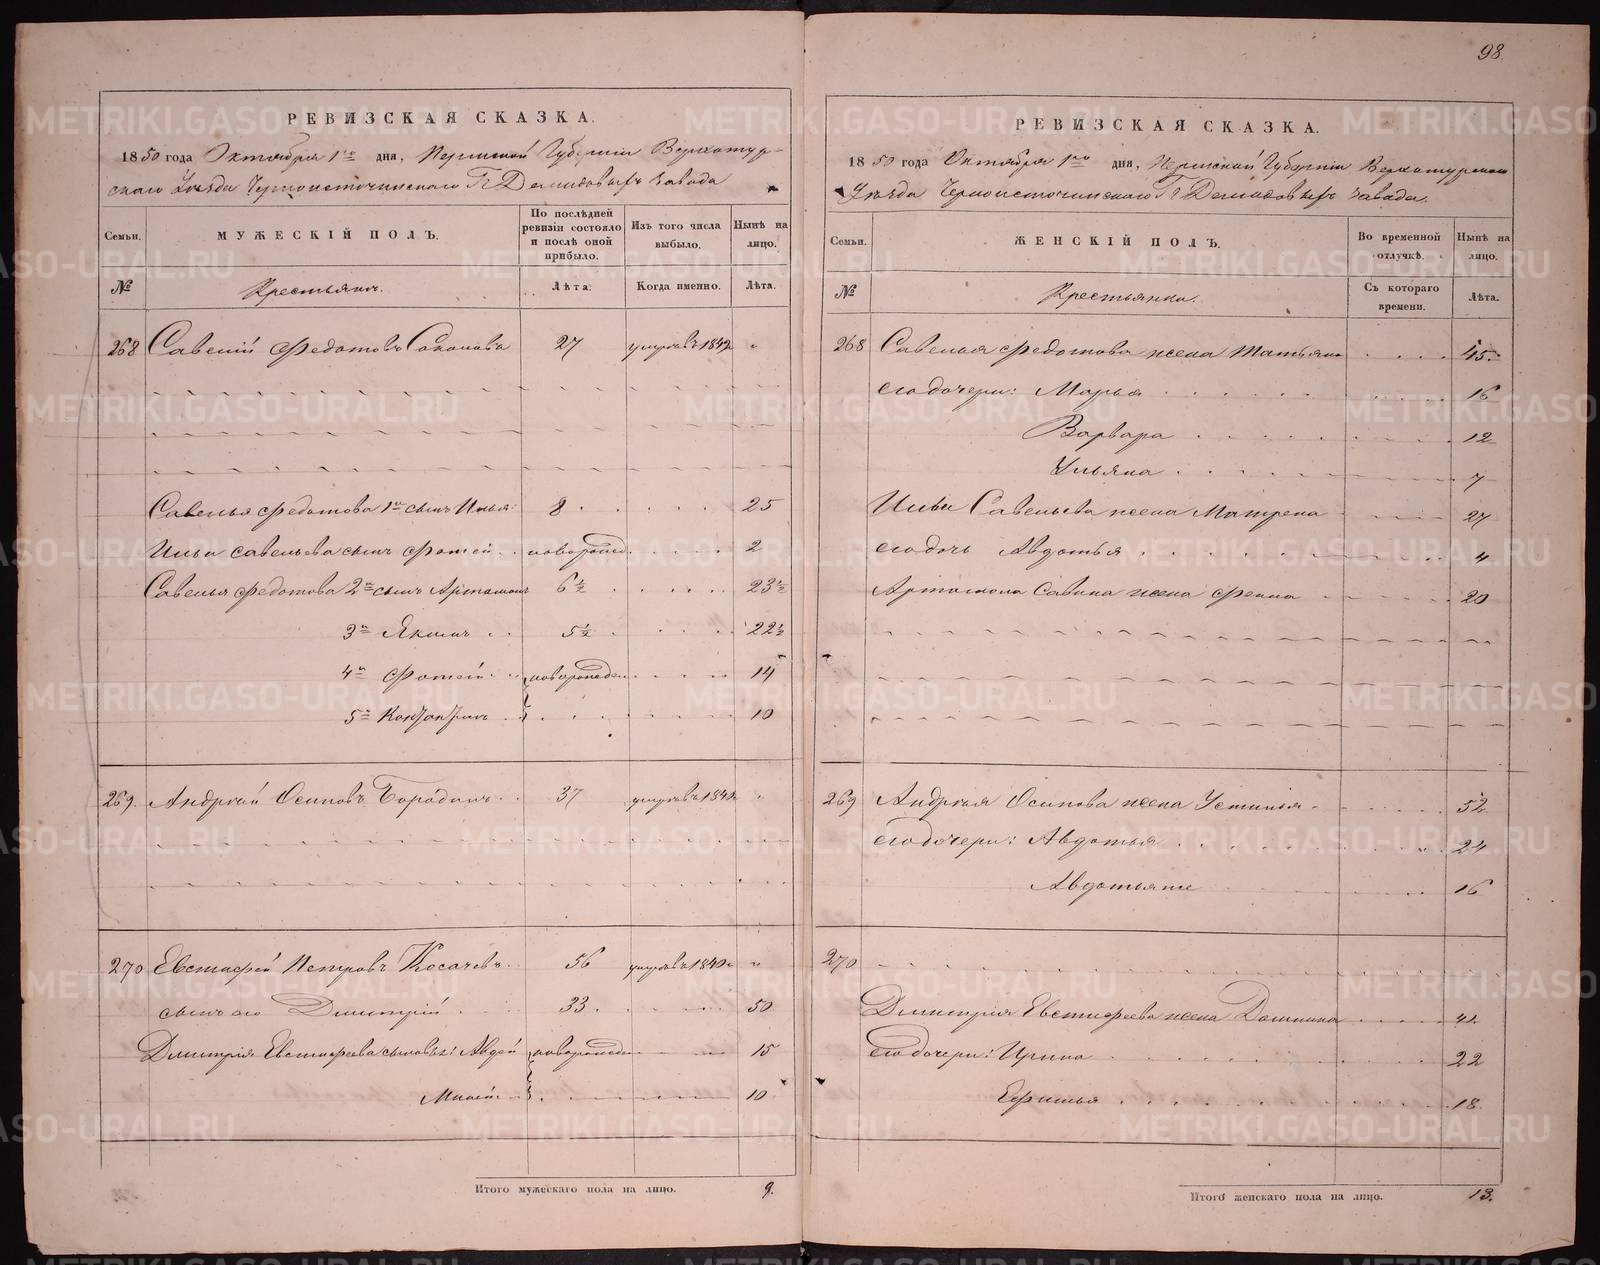 98.
РЕВИЗСКАЯ СКАЗКА.
1850 года Октября 1го дня, Пермской Губернiи Верхотур-
скаго Уѣзда Черноисточинскаго Гг Демидовыхъ завода
Семьи. МУЖЕСКІЙ ПОЛЪ. По послѣдней ревизіи состояло и послѣ оной прибыло. Изъ того числа выбыло. Нынѣ на лицо.
№ Крестьянъ. Лѣта. Когда именно. Лѣта.
268 Савелiй Федотовъ 27 умеръ въ 1849 "
Савелья Федотова 1й сынъ Илья 8 25
Ильи Савельева сынъ Фотей новорожд. 2
Савелья Федотова 2й сынъ Артамонъ 6½ 23½
3й Якимъ 5½ 22½
4й Фотей новорожден 14
5й 10
269. Андрей Осиповъ Бородинъ 37 умеръ въ 1840 "
270 Евстифей Петровъ Косачевъ 56 умеръ въ 1840 "
сынъ его Дмитрiй 33 50
Дмитрiя Евстифеева сыновья: Авдей новорожден 15
10
Итого мужескаго пола на лицо. 9.
РЕВИЗСКАЯ СКАЗКА.
1850 года Октября 1го дня, Пермской Губернiи Верхотурскаго
Уѣзда Черноисточинскаго Гг Демидовыхъ завода.
Семьи. ЖЕНСКІЙ ПОЛЪ. Во временной отлучкѣ. Нынѣ на лицо.
№ Крестьянки. Съ котораго времени. Лѣта.
268 Савелья Федотова жена Татьяна 45
его дочери: Марья 16
Варвара 12
Ульяна 7
Ильи Савельева жена Матрена 27
его дочь Авдотья 4
Артамона Савина жена 20
269 Андрея Осипова жена Устинья 52
его дочери: Авдотья 24
Авдотья же 16
270
Дмитрiя Евстифеева жена Домнина 41
его дочери: Ирина 22
18
Итого женскаго пола на лицо. 13.
METRIKI.GASO-URAL.RU